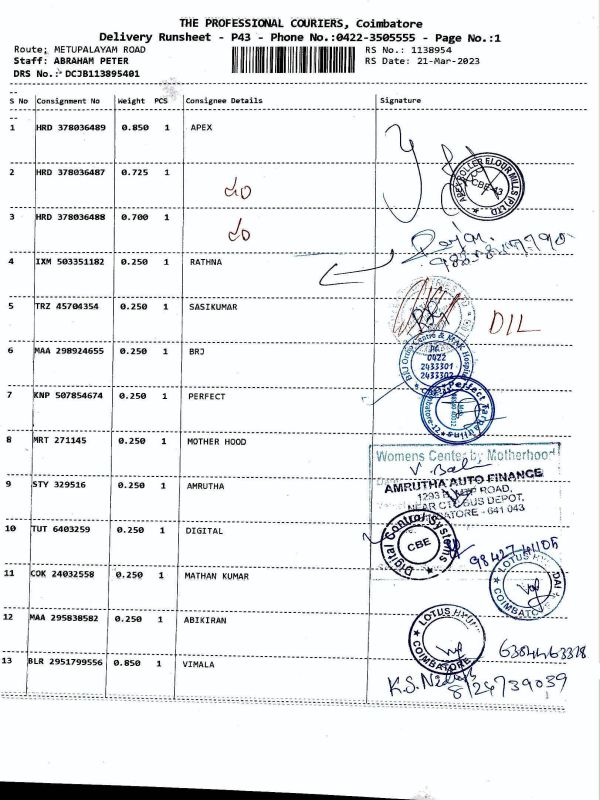 THE PROFESSIONAL COURIERS, Coimbatore
Delivery Runsheet - P43 - Phone No.:0422-3505555 - Page No.:1
Route: METUPALAYAM ROAD RS No.: 1138954
Staff: ABRAHAM PETER RS Date: 21-Mar-2023
DRS No.: DCJB113895401
S No Consignment No Weight PCS Consignee Details Signature
1 HRD 378036489 0.850 1 APEX
2 HRD 378036487 0.725 1
APEX ROLLER FLOUR MILLS (P) LTD
CBE-43
3 HRD 378036488 0.700 1
4 IXM 503351182 0.250 1 RATHNA
5 TRZ 45704354 0.250 1 SASIKUMAR
DIL
6 MAA 298924655 0.250 1 BRJ
Ortho Centre & MAK Hospital
Ph:
0422
2433301
2433302
7 KNP 507854674 0.250 1 PERFECT
Perfect
8 MRT 271145 0.250 1 MOTHER HOOD
Womens Center by Motherhood
V. Bala
9 STY 329516 0.250 1 AMRUTHA
AMRUTHA AUTO FINANCE
ROAD,
NEAR CTC BUS DEPOT,
COIMBATORE - 641 043
10 TUT 6403259 0.250 1 DIGITAL
Digital Control Systems
CBE
11 COK 24032558 0.250 1 MATHAN KUMAR
LOTUS
COIMBATORE
12 MAA 295838582 0.250 1 ABIKIRAN
LOTUS
COIMBATORE
13 BLR 2951799556 0.850 1 VIMALA
8124739039